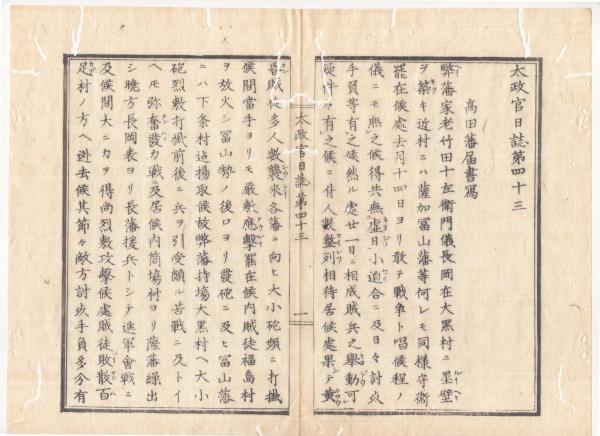 太政官日誌第四十三
高田藩届書寫
弊藩家老竹田十左衛門儀長岡在大黒村ニ墨壁
ヲ築キ近村ニハ薩加冨山藩等何レモ同樣守衛
罷在候處去月十四日ヨリ敢テ戰爭ト唱候程ノ
儀ニモ無之候得共無虚日小迫合ニ及日々討死
手負等有之候然ル處廿一日ニ相成賊兵之擧動可
疑件々有之候ニ付人數整列相待居候處果テ黄
太政官日誌第四十三
一
昏賊徒多人數襲來各藩ニ向ヒ大小砲頻ニ打掛
候間當手ヨリモ嚴敷應擊罷在候内賊徒福島村
ヲ放火シ冨山勢ノ後ロヨリ發砲ニ及ヒ冨山藩
ニハ下条村迠揚取候故弊藩持塲大黒村ヘ大小
砲烈敷打掛前後ニ兵ヲ引受頗ル苦戰ニ及トイ
ヘモ弥奮發力戰及居候内筒塲村ヨリ薩藩繰出
シ曉方長岡表ヨリ長藩援兵トシテ進軍會戰ニ
及候間大ニカヲ得尚烈敷攻擊候處賊徒敗散百
足村ノ方ヘ逃去候其節々敵方討死手負多分有